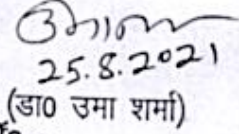 25.8.2021
(डा0 उमा शर्मा)